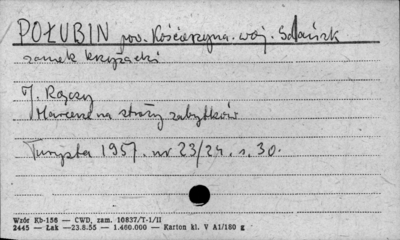 POŁUBIN pow. Kościerzyna. woj. Gdańsk
zamek krzyżacki
J. Rączy
Harcerze na straży zabytków
Turysta 1957. nr 23/24. s. 30.
Wzór Kb-156 — CWD, zam. 10837/T-1/II
2445 — Łak —23.8.55 — 1.460.000 — Karton kl. V A1/180 g